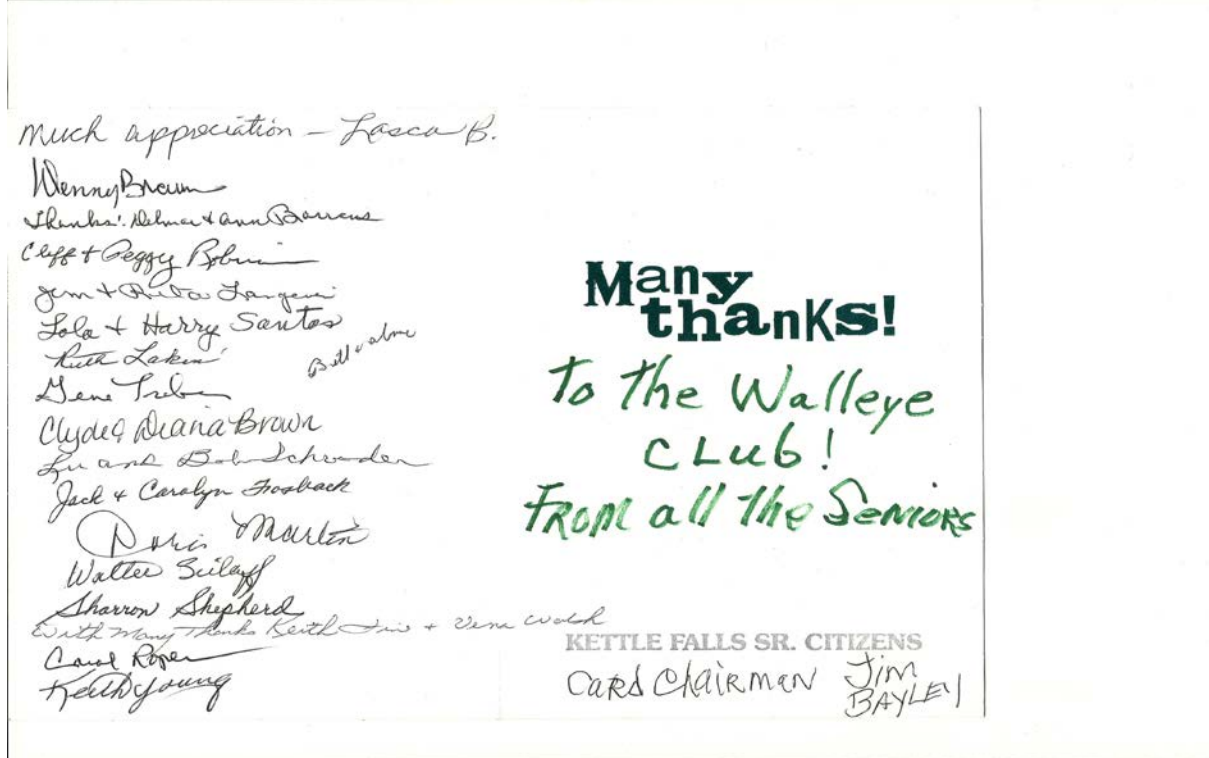 much appreciation - Lasca B.
Wenny Brown
Thanks! Delmar & Ann Barrens
Cliff + Peggy
Jim + Rita
Lola + Harry Santos
Ruth Lakin
Bill & Alma
Gene
Clyde & Diana Brown
Lu and Bob Schroeder
Jack + Carolyn Frosback
Doris Martin
Walter
Sharron Shepherd
With Many Thanks Keith + Vena Walsh
Carol Roper
Keith Young
Many
thanks!
To the Walleye
CLub!
FROM all the SENIORS
KETTLE FALLS SR. CITIZENS
CARd ChAIRMAN JIM
BAYLEY